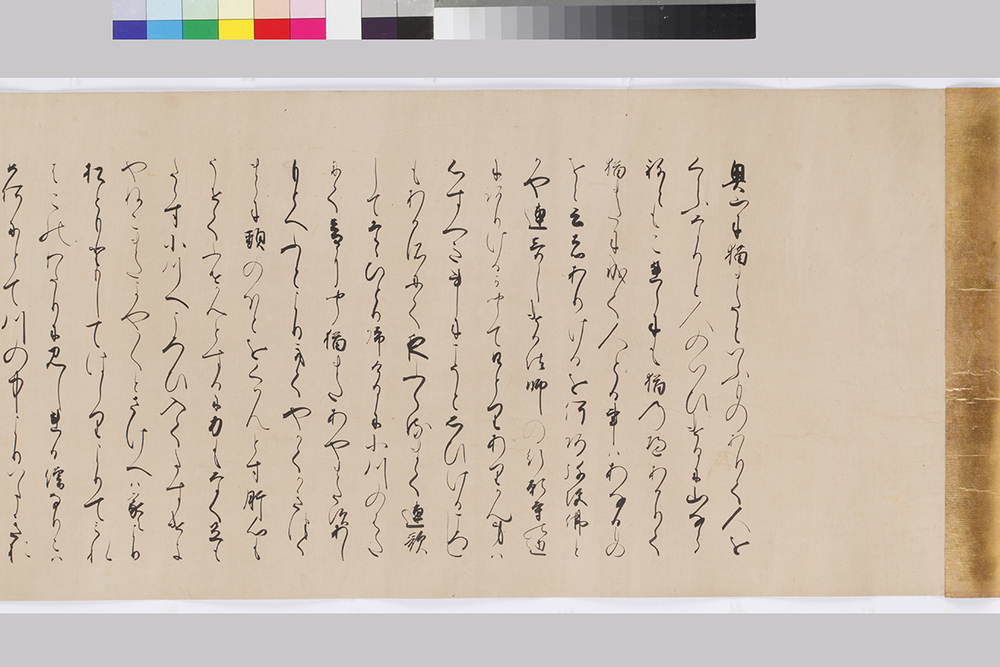 奥山に猫またといふものありて人を
くらふなりと人のいひけるに山なら
ねともこれらにも猫のへあかりて
猫またに成て人とる事はあなるもの
をと云者ありけるを何阿弥陀佛と
かや連哥しける法師の行願寺邊
に有けるか聞てひとりありかん身は
心すへき事にこそと思ひける比し
もある所にて夜ふくるまて連歌
してたゝひとり帰りけるに小川のはた
にて音に聞し猫またあやまたす足
もとへふとより来てやかてかきつく
まゝに頸のほとをくはんとす肝心も
うせてふせかんとするに力もなく足も
たゝす小川へころひ入てたすけよ
やねこまたよや〳〵とさけへは家々より
松ともともしてはしりよりてみれ
はこのわたりに見しれる僧なりこは
如何にとて川の中より